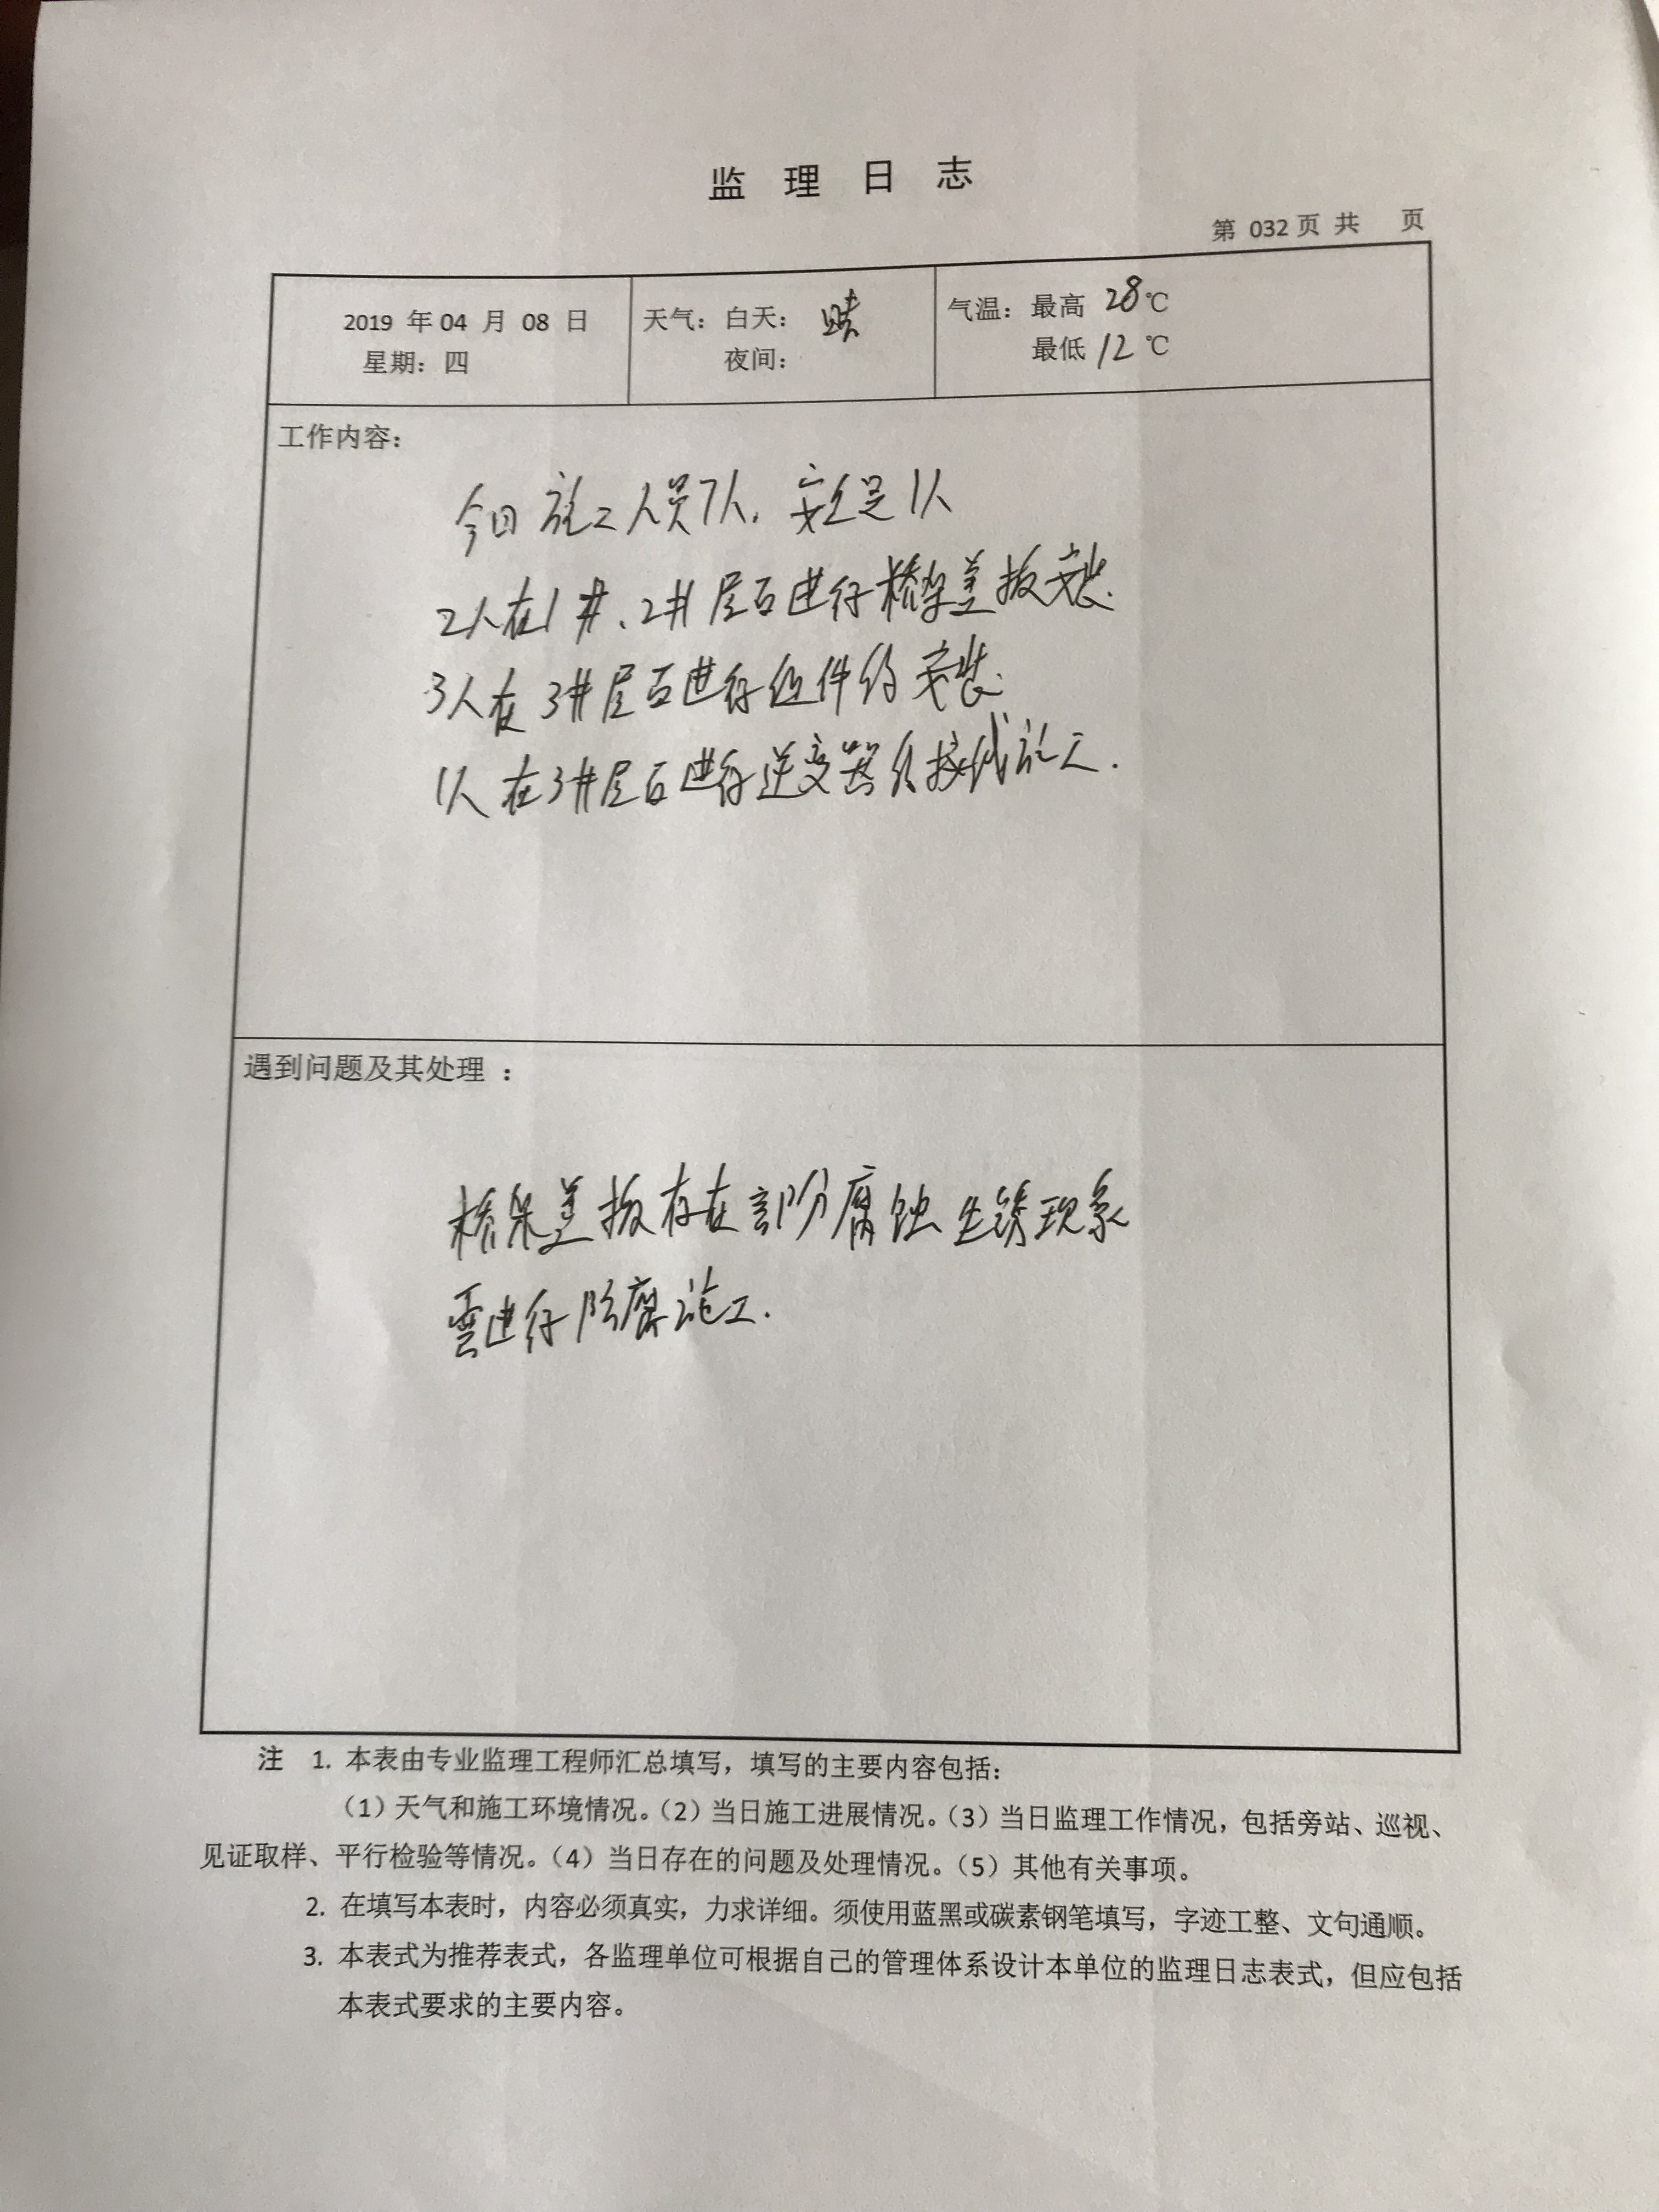 监 理 日 志
第 032 页 共 页
2019 年 04 月 08 日
星期：四
天气：白天：晴
夜间：
气温：最高 28℃
最低 12℃
工作内容：
今日施工人员7人，安全员1人
2人在1#、2#屋面进行桥架盖板安装.
3人在3#屋面进行组件的安装.
1人在3#屋面进行逆变器的接线施工.
遇到问题及其处理 ：
桥架盖板存在部分腐蚀生锈现象
需进行防腐施工.
注 1. 本表由专业监理工程师汇总填写，填写的主要内容包括：
（1）天气和施工环境情况。（2）当日施工进展情况。（3）当日监理工作情况，包括旁站、巡视、
见证取样、平行检验等情况。（4）当日存在的问题及处理情况。（5）其他有关事项。
2. 在填写本表时，内容必须真实，力求详细。须使用蓝黑或碳素钢笔填写，字迹工整、文句通顺。
3. 本表式为推荐表式，各监理单位可根据自己的管理体系设计本单位的监理日志表式，但应包括
本表式要求的主要内容。